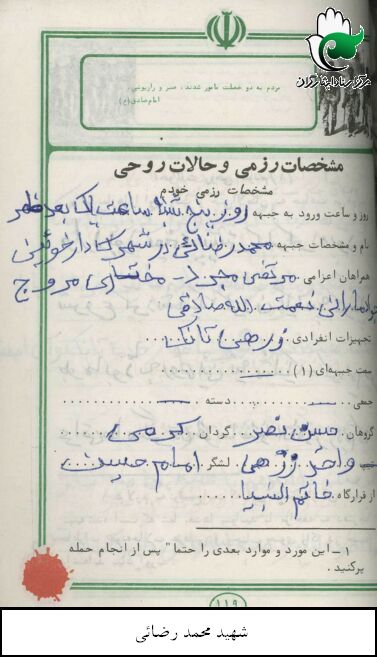 مردم به دو خصلت مامور شدند ، صبر و رازپوشی .
امام صادق (ع)
مشخصات رزمی و حالات روحی
مشخصات رزمی خودم
روز و ساعت ورود به جبهه روز پنج شنبه ساعت یک بعد ظهر
نام و مشخصات جبهه محمد رضائی در شهرک دارخوئین
همراهان اعزامی مرتضی
نعمت الله صادقی
تجهیزات انفرادی زرهی تانک
سمت جبهه‌ای (۱)
جمعی دسته
گروهان حسن نصر گردان کریمی
واحد زرهی لشگر امام حسین
از قرارگاه خاتم النبیا
۱ - این مورد و موارد بعدی را حتما" پس از انجام حمله
پرکنید .
۱۱۹
شهید محمد رضائی